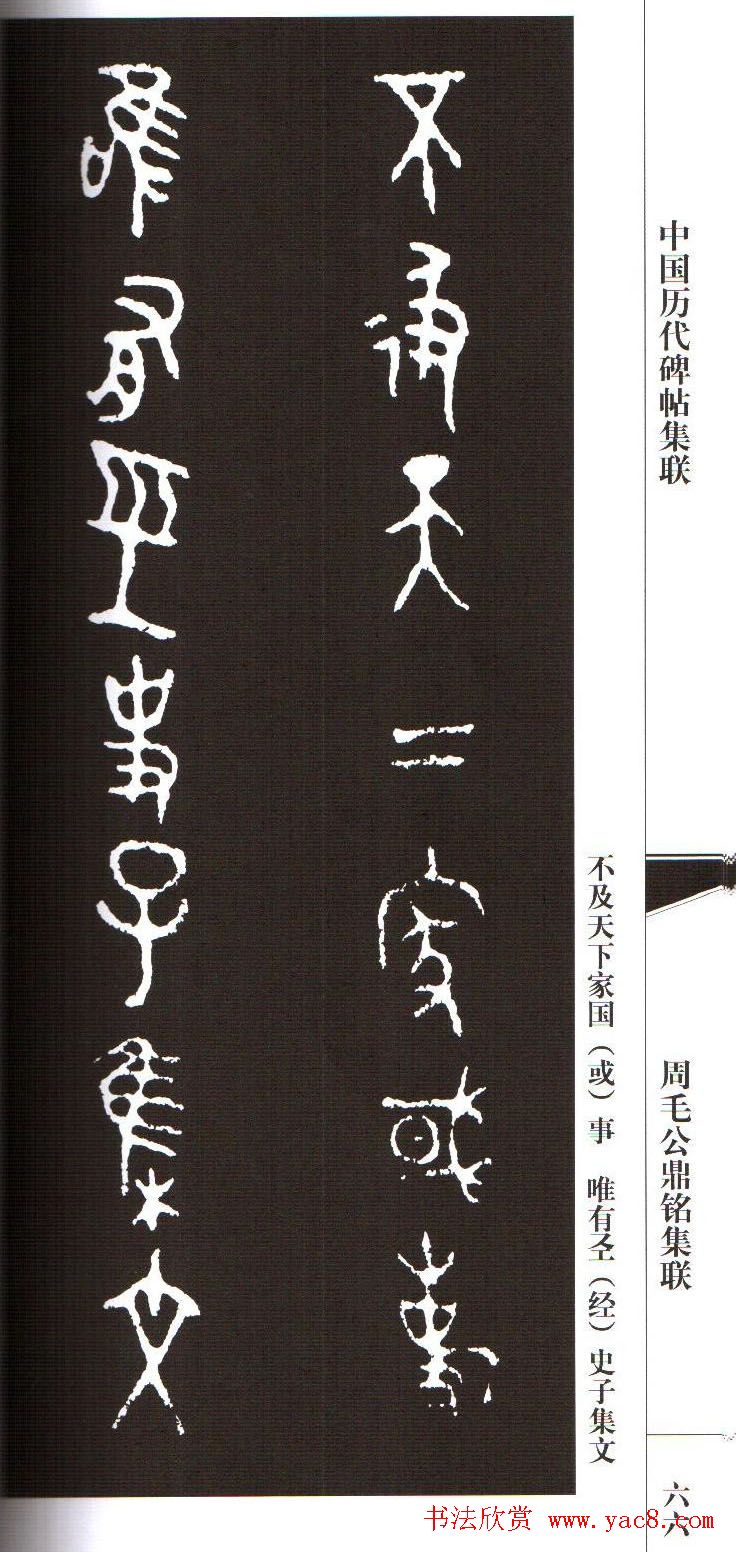 中国历代碑帖集联
周毛公鼎铭集联
六六
不及天下家国（或）事　唯有𢀖（经）史子集文
不及天下家或事
唯有巠史子集文
书法欣赏 www.yac8.com